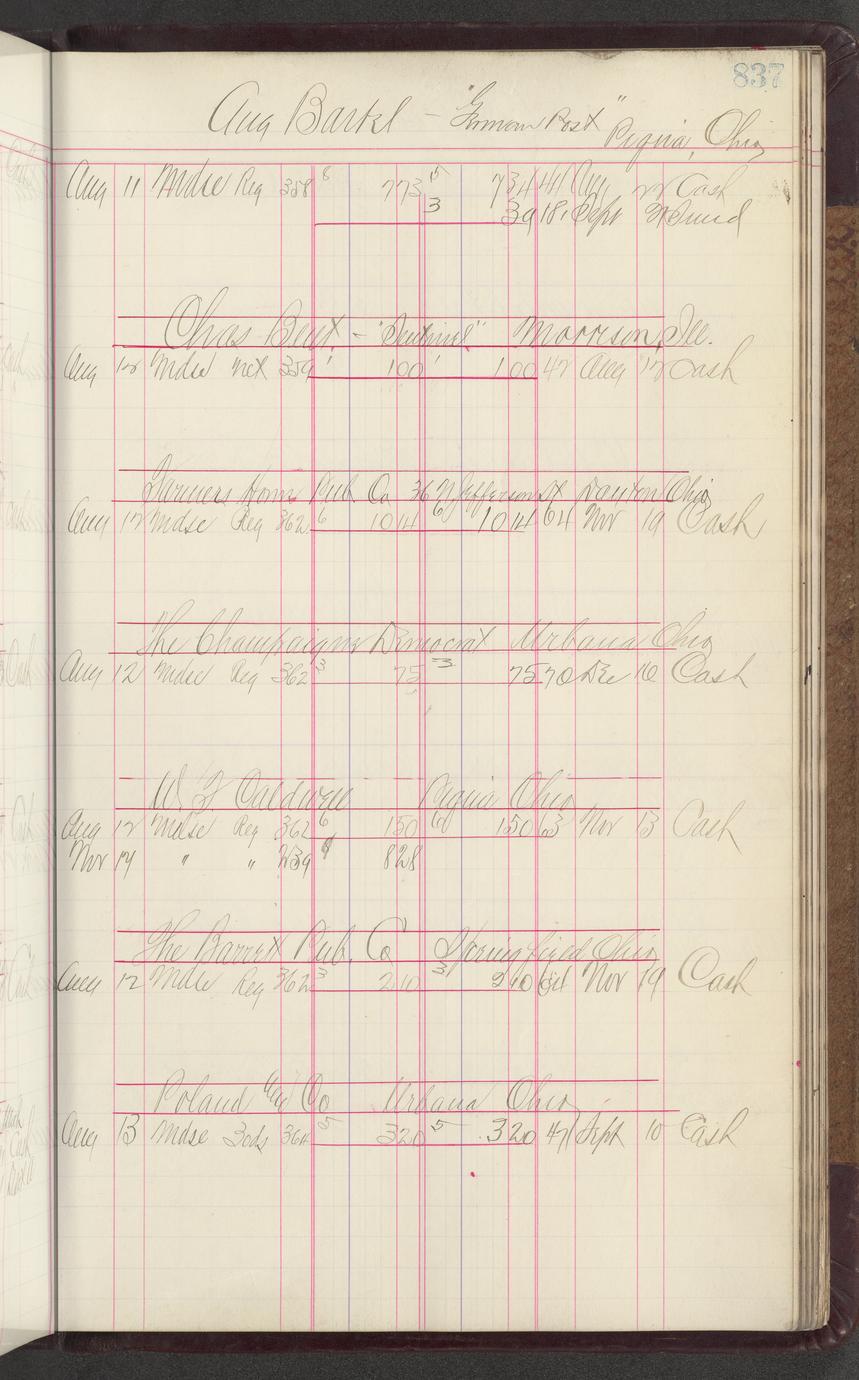 837
Aug Bartel - "German Post" Piqua, Ohio
Aug 11 Mdse Reg 358 8 773 5 734 41 Aug 22 Cash
3 39 18 Sept
Chas Bent - "Sentinel" Morrison, Ill.
Aug 12 Mdse net 359 1 100 1 100 42 Aug 12 Cash
Farmers Home Pub Co 36 N Jefferson St Dayton Ohio
Aug 12 Mdse Reg 362 6 1014 6 1014 64 Nov 19 Cash
The Champaign Democrat Urbana Ohio
Aug 12 Mdse Reg 362 3 75 3 75 70 Dec 16 Cash
W. F. Caldwell Piqua Ohio
Aug 12 Mdse Reg 362 6 150 6 150 63 Nov 13 Cash
Nov 17 " " 828
The Barrett Pub. Co Springfield Ohio
Aug 12 Mdse Reg 362 3 210 3 210 64 Nov 19 Cash
Poland Co Urbana Ohio
Aug 13 Mdse 30ds 364 5 320 5 320 47 Sept 10 Cash